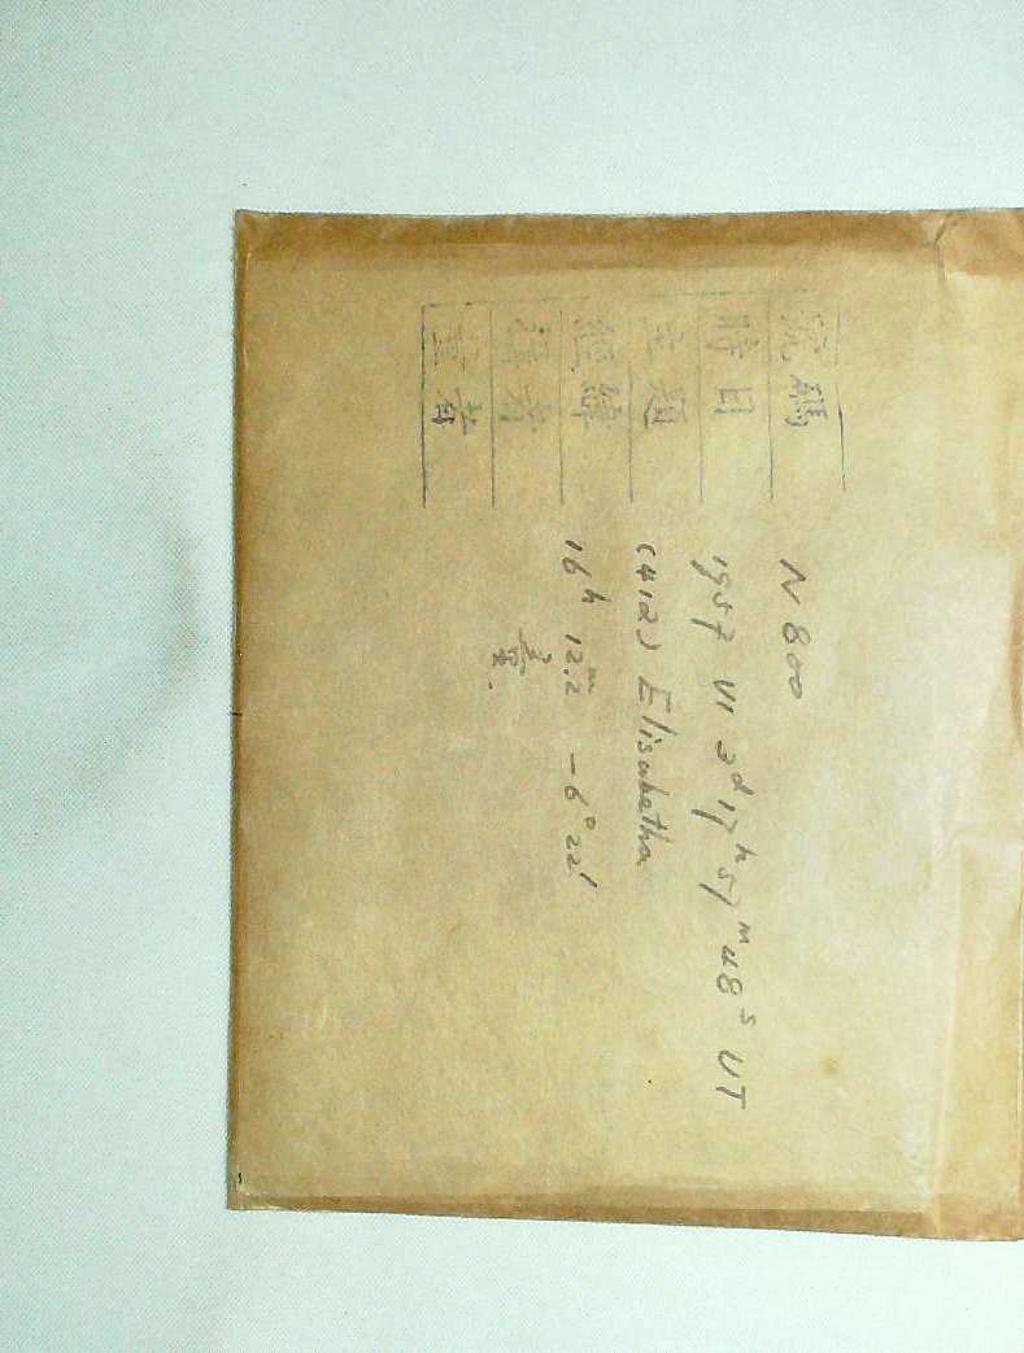 號碼 N 800
時日 1957 VI 3ᵈ 17ʰ 57ᵐ 48ˢ UT
主題 (412) Elisabetha
經緯 16ʰ 12.ᵐ2 −6°22′